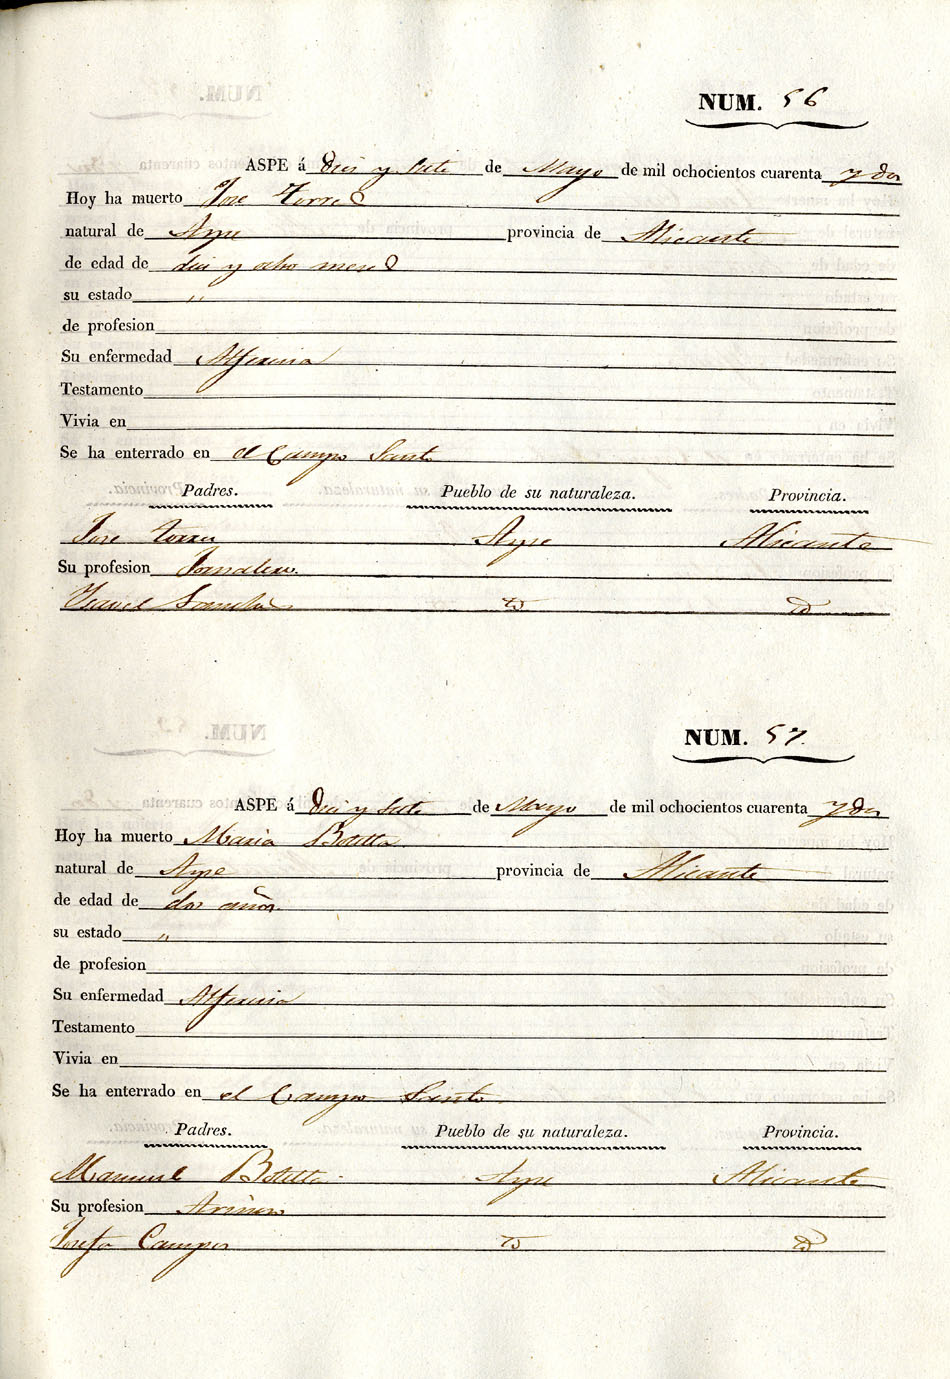 NUM. 56
ASPE á diez y siete de Mayo de mil ochocientos cuarenta y dos
Hoy ha muerto Jose Torres
natural de Aspe provincia de Alicante
de edad de diez y ocho meses
su estado "
de profesion
Su enfermedad Alferecia
Testamento
Vivia en
Se ha enterrado en el Campo Santo
Padres. Pueblo de su naturaleza. Provincia.
Jose Torres Aspe Alicante
Su profesion Jornalero.
Isavel Sanchez id id
NUM. 57.
ASPE á diez y siete de Mayo de mil ochocientos cuarenta y dos
Hoy ha muerto Maria Botella
natural de Aspe provincia de Alicante
de edad de dos años.
su estado "
de profesion
Su enfermedad Alferecia
Testamento
Vivia en
Se ha enterrado en el Campo Santo
Padres. Pueblo de su naturaleza. Provincia.
Manuel Botella Aspe Alicante
Su profesion Arriero
Josefa Campos id id